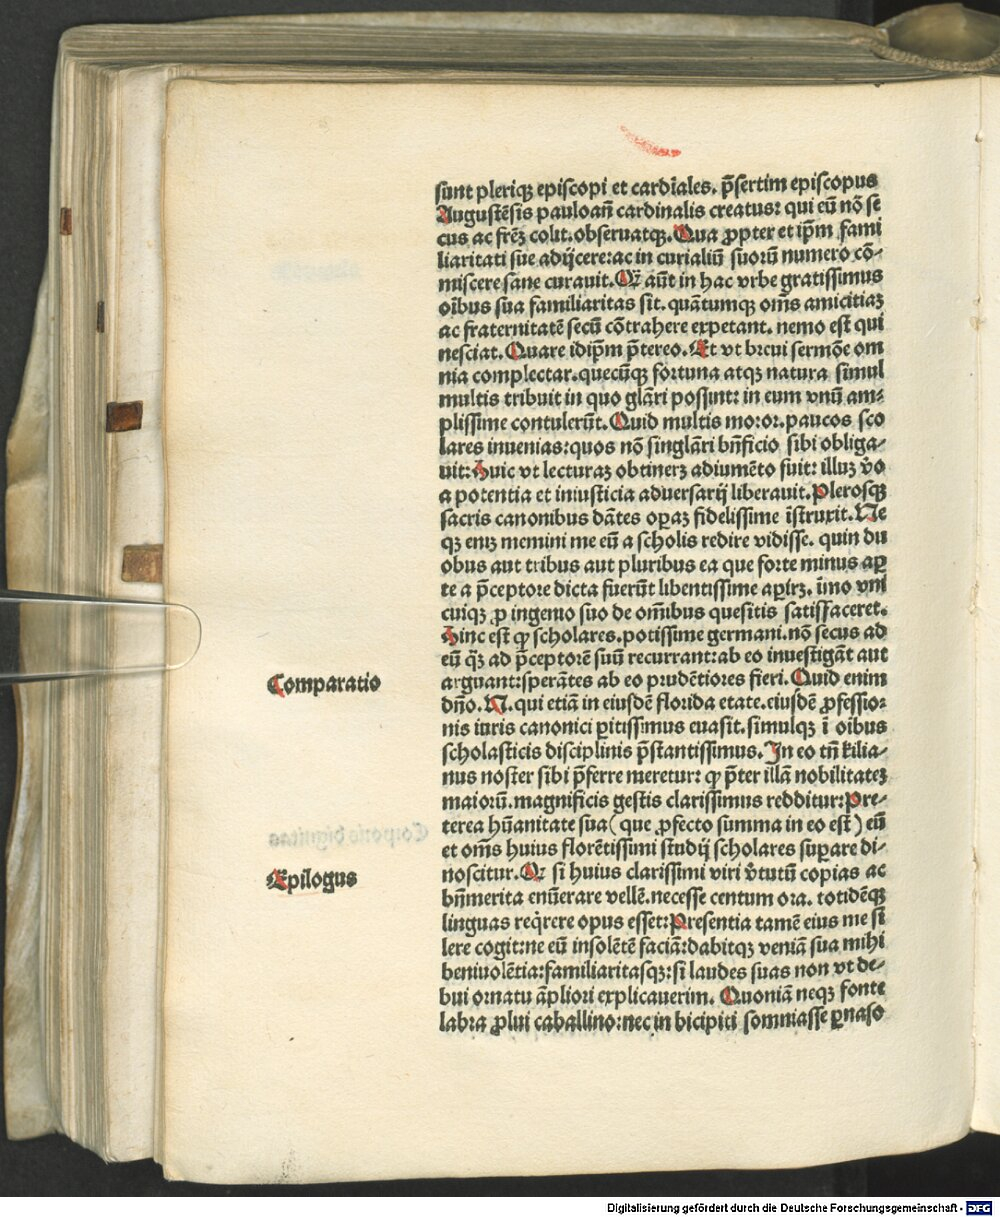 sunt pleriqꝫ episcopi et cardīales. p̄sertim episcopus
Augustēsis pauloañ cardinalis creatus: qui eū nō se
cus ac frēꝫ colit. obseruatqꝫ. Qua ꝓpter et ip̄m fami
liaritati sue adijcere: ac in curialiū suorū numero cō-
miscere sane curauit. Qꝫ aūt in hac vrbe gratissimus
oībus sua familiaritas sit. quātumqꝫ om̄s amicitiaꝫ
ac fraternitatē secū cōtrahere expetant. nemo est qui
nesciat. Quare idip̄m p̄tereo. Et vt breui sermōe om
nia complectar. quecūqꝫ fortuna atqꝫ natura simul
multis tribuit in quo gl̄ari possint: in eum vnū am-
plissime contulerūt. Quid multis moror. paucos sco
lares inuenias: quos nō singl̄ari bn̄ficio sibi obliga-
uit: Huic vt lecturaꝫ obtinerꝫ adiumēto fuit: illuꝫ v̄o
a potentia et iniusticia aduersarij liberauit. Plerosqꝫ
sacris canonibus dātes oꝑaꝫ fidelissime īstruxit. Ne
qꝫ eniꝫ memini me eū a scholis redire vidisse. quin du
obus aut tribus aut pluribus ea que forte minus aꝑ
te a p̄ceptore dicta fuerūt libentissime aꝑirꝫ. īmo vni
cuiqꝫ ꝓ ingenio suo de om̄ibus quesitis satisfaceret.
Hinc est ꝙ scholares. potissime germani. nō secus ad
eū q̄ꝫ ad p̄ceptorē suū recurrant: ab eo inuestigāt aut
Comparatio
arguant: sperātes ab eo prudētiores fieri. Quid enim
dn̄o. N. qui etiā in eiusdē florida etate. eiusdē ꝓfessio-
nis iuris canonici ꝑitissimus euasit. simulqꝫ ī oībus
scholasticis disciplinis p̄stantissimus. In eo tn̄ kilia-
nus noster sibi p̄ferre meretur: ꝙ p̄ter illā nobilitateꝫ
maiorū. magnificis gestis clarissimus redditur: Pre-
terea hūanitate sua (que ꝓfecto summa in eo est) eū
et om̄s huius florētissimi studij scholares suꝑare di-
Epilogus
noscitur. Qꝫ si huius clarissimi viri v̄tutū copias ac
bn̄merita enūerare vellē. necesse centum ora. totidēqꝫ
linguas req̇rere opus esset: Presentia tamē eius me si
lere cogit: ne eū insolētē faciā: dabitqꝫ veniā sua mihi
beniuolētia: familiaritasqꝫ: si laudes suas non vt de-
bui ornatu āpliori explicauerim. Quoniā neqꝫ fonte
labra ꝓlui caballino: nec in bicipiti somniasse ꝑnaso
Digitalisierung gefördert durch die Deutsche Forschungsgemeinschaft - DFG